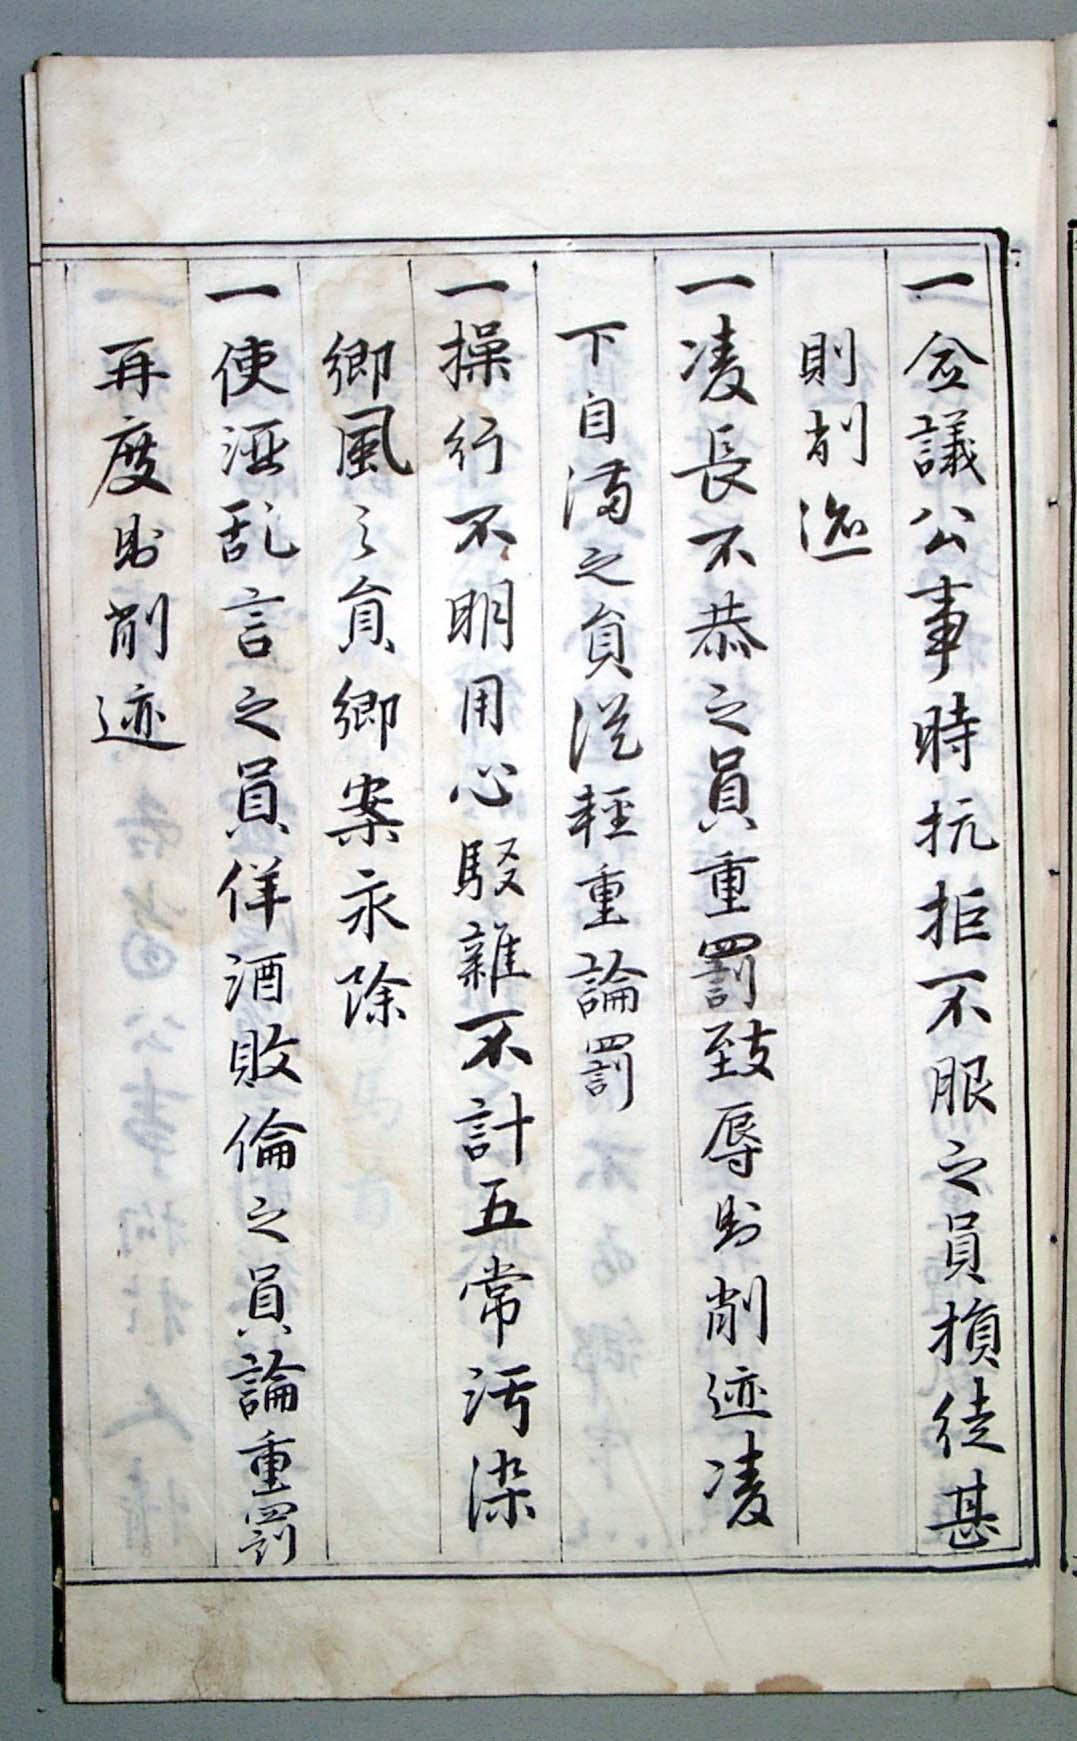 一 僉議公事時抗拒不服之員損徒甚
則削迹
一凌長不恭之員重罰致辱則削迹凌
下自滿之員從輕重論罰
一操行不明用心駁雜不計五常汚染
鄉風之員鄉案永除
一使酒乱言之員佯酒敗倫之員論重罰
再度則削迹